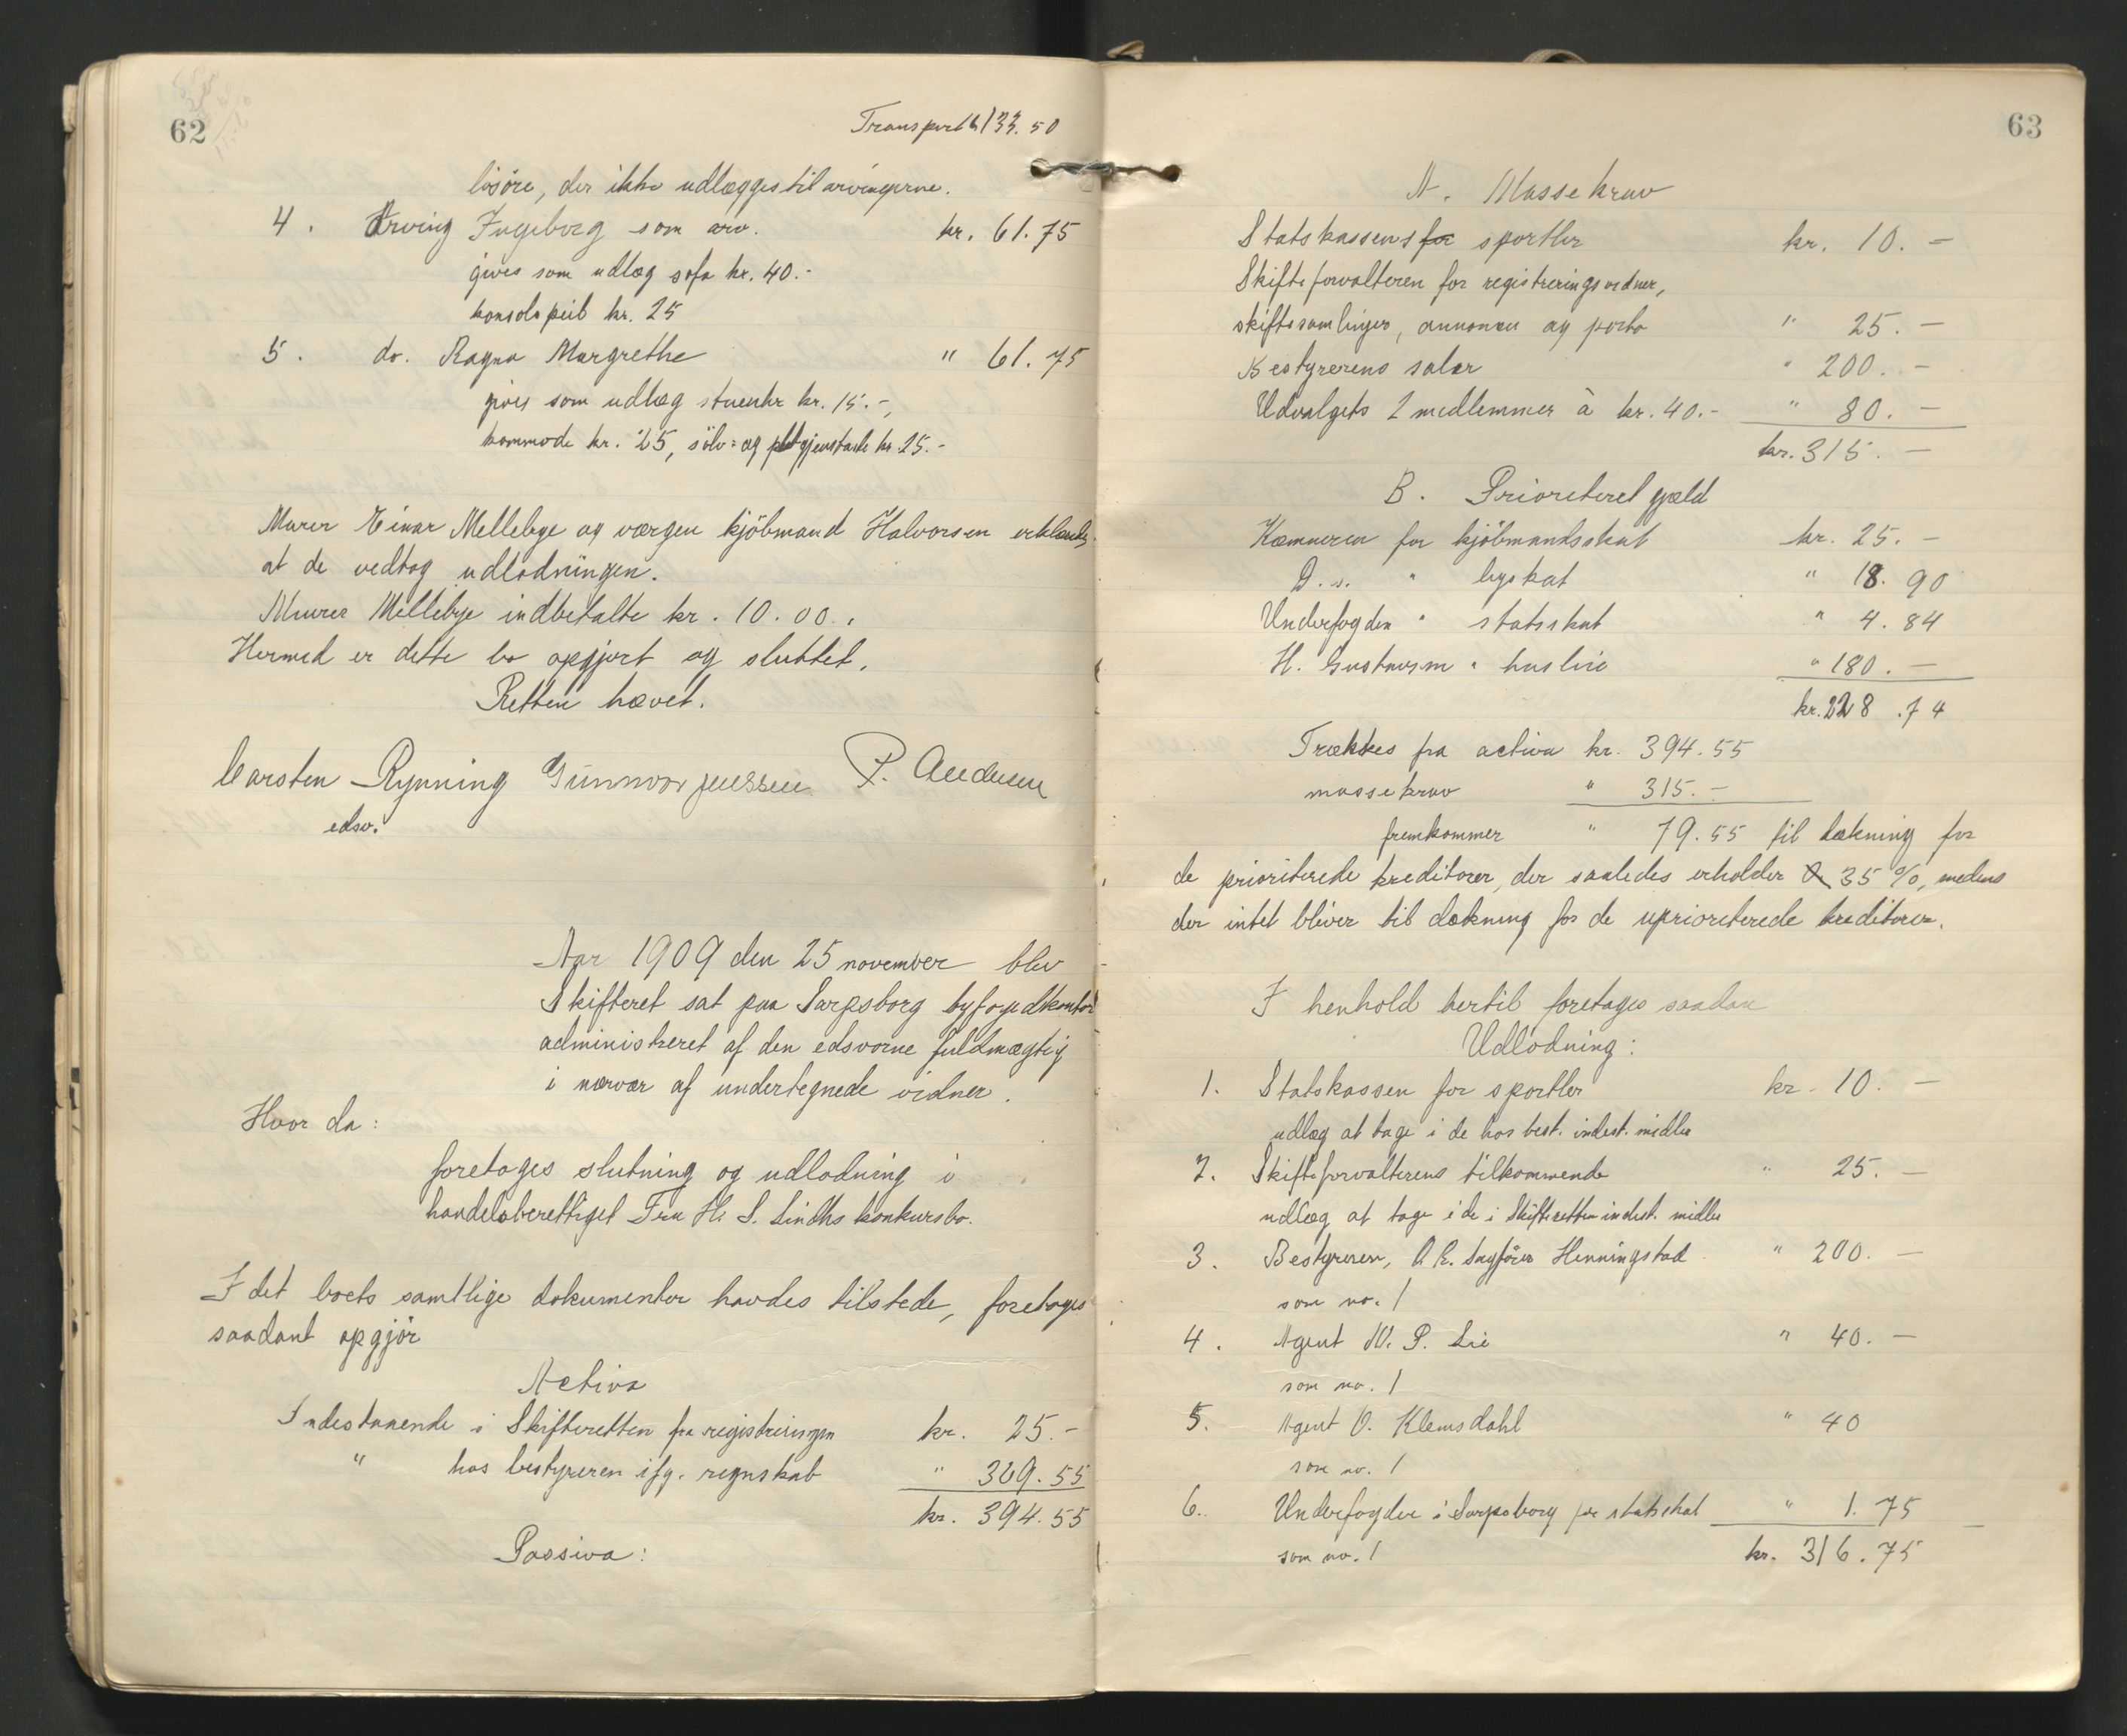 62
Transport 133.50
lösöre, der ikke udlægges til arvingerne.
4. Arving Ingeborg som arv. kr. 61.75
gives som udlæg sofa kr. 40.-
konsolspeil kr. 25
5. do. Ragna Margrethe " 61.75
gives som udlæg stueuhr kr. 15.-,
kommode kr. 25, sölv= og pletgjenstande kr. 25.-
Murer Einar Mellebye og værgen kjöbmand Halvorsen erklærede
at de vedtog udlodningen.
Murer Mellebye indbetalte kr. 10.00.
Hermed er dette bo opgjort og sluttet.
Retten hævet.
Carsten Rynning Gunnvor Jenssen P. Andersen
edsv.
Aar 1909 den 25 november blev
Skifteret sat paa Sarpsborg byfogedkontor
administreret af den edsvorne fuldmægtig
i nærvær af undertegnede vidner.
Hvor da:
foretages slutning og udlodning i
handelsberettiget Fru H. S. Lindhs konkursbo.
I det boets samtlige dokumenter havdes tilstede, foretages
saadant opgjör
Activa
Indestaaende i Skifteretten fra registreringen kr. 25.-
" hos bestyreren ifg. regnskab " 369.55
kr. 394.55
Passiva:
63
A. Massekrav
Statskassens for sportler kr. 10.-
Skifteforvalteren for registreringsvidner,
skiftesamlinger, annoncer og porto " 25.-
Bestyrerens salær " 200.-
Udvalgets 2 medlemmer à kr. 40.- " 80.-
kr. 315.-
B. Prioriteret gjæld
Kæmneren for kjöbmandsskat kr. 25.-
D.s. " byskat " 18.90
Underfogden " statsskat " 4.84
H. Gustavsen " husleie " 180.-
kr. 228.74
Trækkes fra activa kr. 394.55
massekrav " 315.-
fremkommer " 79.55 til dækning for
de prioriterede kreditorer, der saaledes erholder 35 %, medens
der intet bliver til dækning for de uprioriterede kreditorer.
I henhold hertil foretages saadan
Udlodning:
1. Statskassen for sportler kr. 10.-
udlæg at tage i de hos best. indest. midler
2. Skifteforvalterens tilkommende " 25.-
udlæg at tage i de i Skifteretten indest. midler
3. Bestyreren, O.R. Sagförer Henningstad " 200.-
som no. 1
4. Agent W. P. Lie " 40.-
som no. 1
5. Agent O. Klemsdahl " 40
som no. 1
6. Underfogden i Sarpsborg for statsskat " 1.75
som no. 1 kr. 316.75